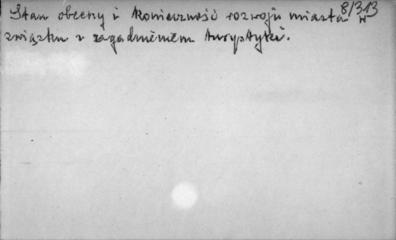 8/313
Stan obecny i konieczność rozwoju miasta w
związku z zagadnieniem turystyki.